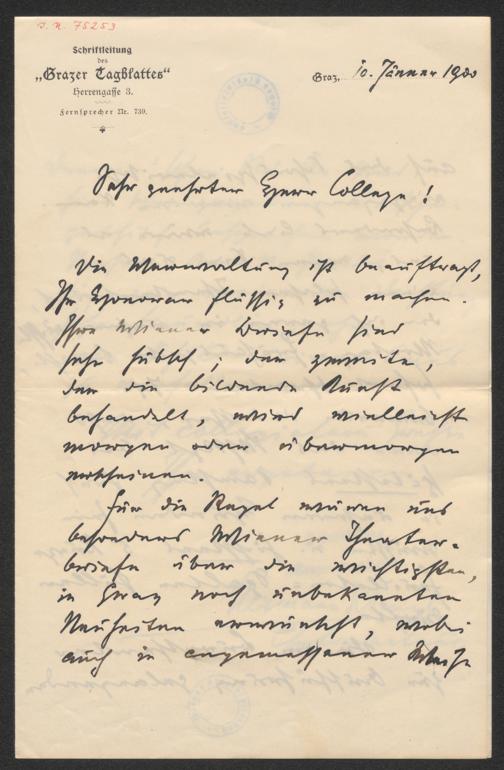 J. N. 75253
Schriftleitung
des
„Grazer Tagblattes“
Herrengasse 3.
Fernsprecher Nr. 730.
Graz, 10. Jänner 1900
Sehr geehrter Herr College!
Die Verwaltung ist beauftragt,
Ihr Honorar flüssig zu machen.
Ihre Wiener Briefe sind
sehr hübsch; der zweite,
der die bildende Kunst
behandelt, wird vielleicht
morgen oder übermorgen
erscheinen.
Für die Regel wären uns
besonders Wiener Theater-
briefe über die wichtigsten,
in Graz noch unbekannten
Neuheiten erwünscht, wobei
auch in angemessener Weise